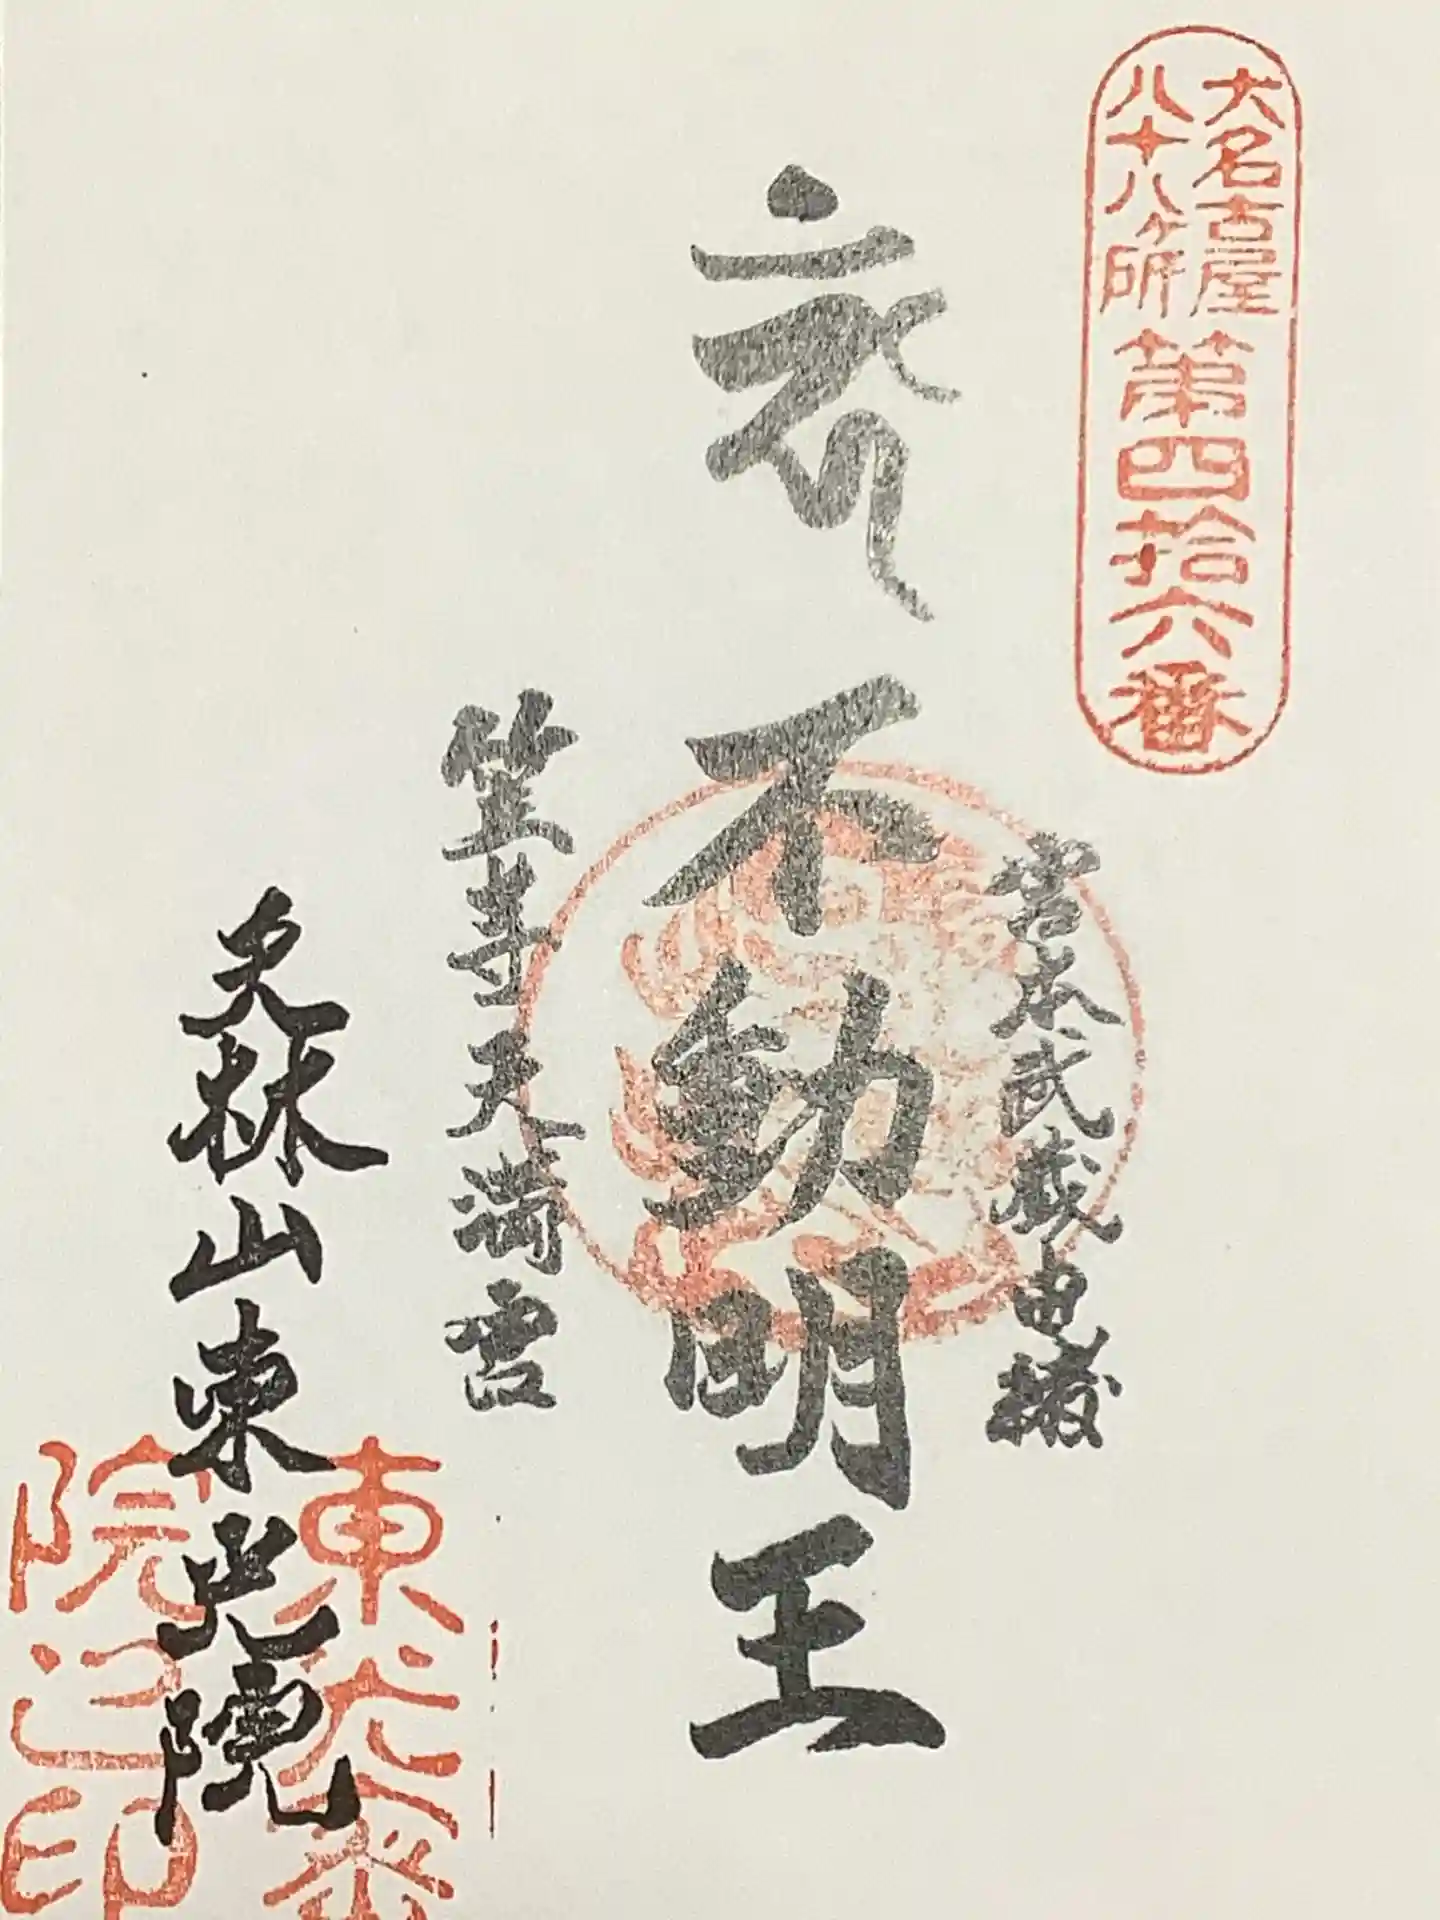 大名古屋
八十八ヶ所
第四拾六番
宮本武蔵由縁
不動明王
笠寺天満宮
天林山東光院
東光
院之印